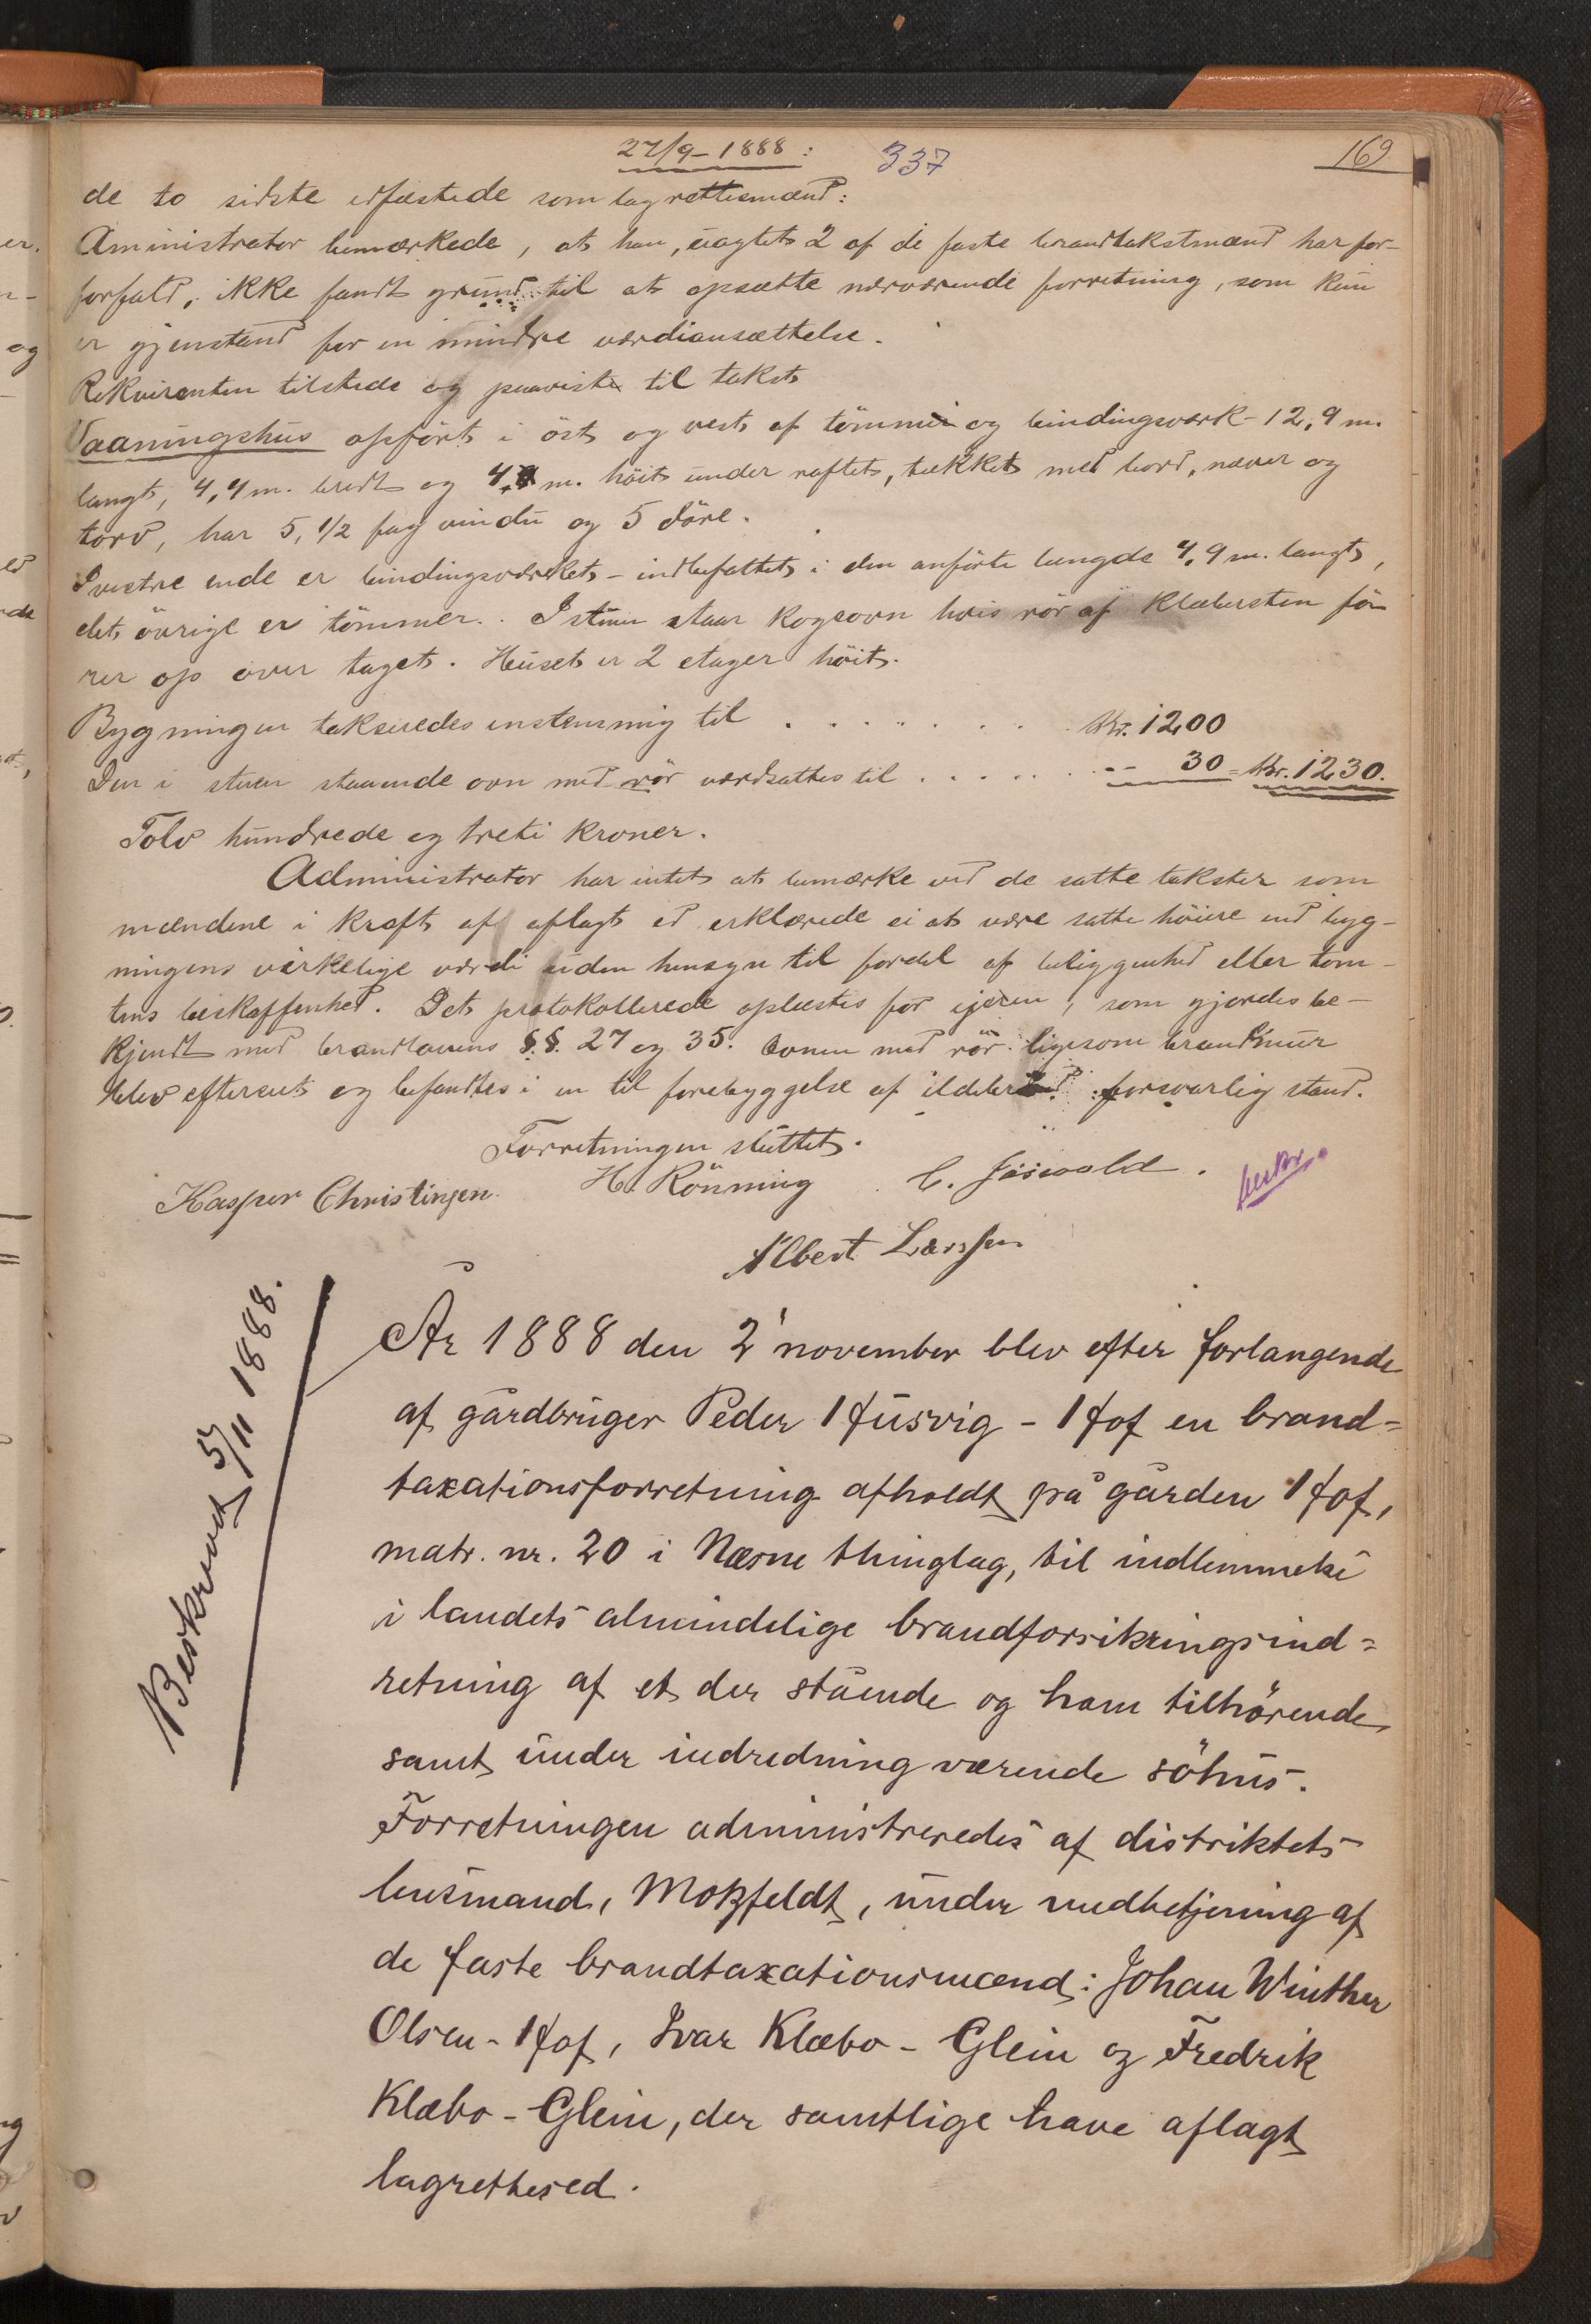 27/9-1888: 337 169
de to sidste edfæstede som lagrettesmænd:
Aministrator bemærkede, at han, uagtet 2 af de faste brandtakstmænd har for-
forfald, ikke fandt grund til at opsætte nærværende forretning, som kun
er gjenstand for en mindre værdiansættelse.
Rekvirenten tilstede og paaviste til takst
Vaaningshus opført i öst og vest af tömmer og bindingsværk - 12,9 m.
langt, 4,4 m. bredt og 4, m. höit under raftet, tækket med bord, næver og
torv, har 5, 1/2 fag vindu og 5 döre.
I vestre ende er bindingsværket - indbefattet i den anförte længde 4,9 m. langt,
det övrige er tömmer. I stuen staar kogeovn hvis rör af klæbersten fö-
rer op over taget. Huset er 2 etager höit.
Bygningen takseredes enstemmig til . . . . . . . Kr. 1200
Den i stuen staaende ovn med rör værdsattes til . . . . . . -- 30 = Kr. 1230.
Tolv hundrede og treti kroner.
Administrator har intet at bemærke ved de satte takster som
mændene i kraft af aflagt ed erklærede ei at være satte höiere end byg-
ningens virkelige værdi uden hensyn til fordel af beliggenhed eller tom-
tens beskaffenhet. Det protokollerede oplæstes for ejeren, som gjordes be-
kjendt med brandlovens §.§. 27 og 35. Ovnen med rör ligesom brandmur
blev efterseet og befandtes i en til forebyggelse af ildebrand forsvarlig stand.
Forretningen sluttet.
Kasper Christinsen. H. Rönning C. Jöswold.
Albert Larssen
Beskrevet 5/11 1888.
År 1888 den 2' november blev efter forlangende
af gårdbruger Peder Husvig - Hof en brand=
taxationsforretning afholdt på gården Hof,
matr. nr. 20 i Næsne thinglag, til indlemmelse
i landets almindelige brandforsikringsind=
retning af et der stående og ham tilhörende
samt under indredning værende söhus.
Forretningen administreredes af distriktets
lensmand, Motzfeldt, under medbetjening af
de faste brandtaxationsmænd: Johan Winther
Olsen - Hof, Ivar Klæbo - Glein og Fredrik
Klæbo - Glein, der samtlige have aflagt
lagrettesed.